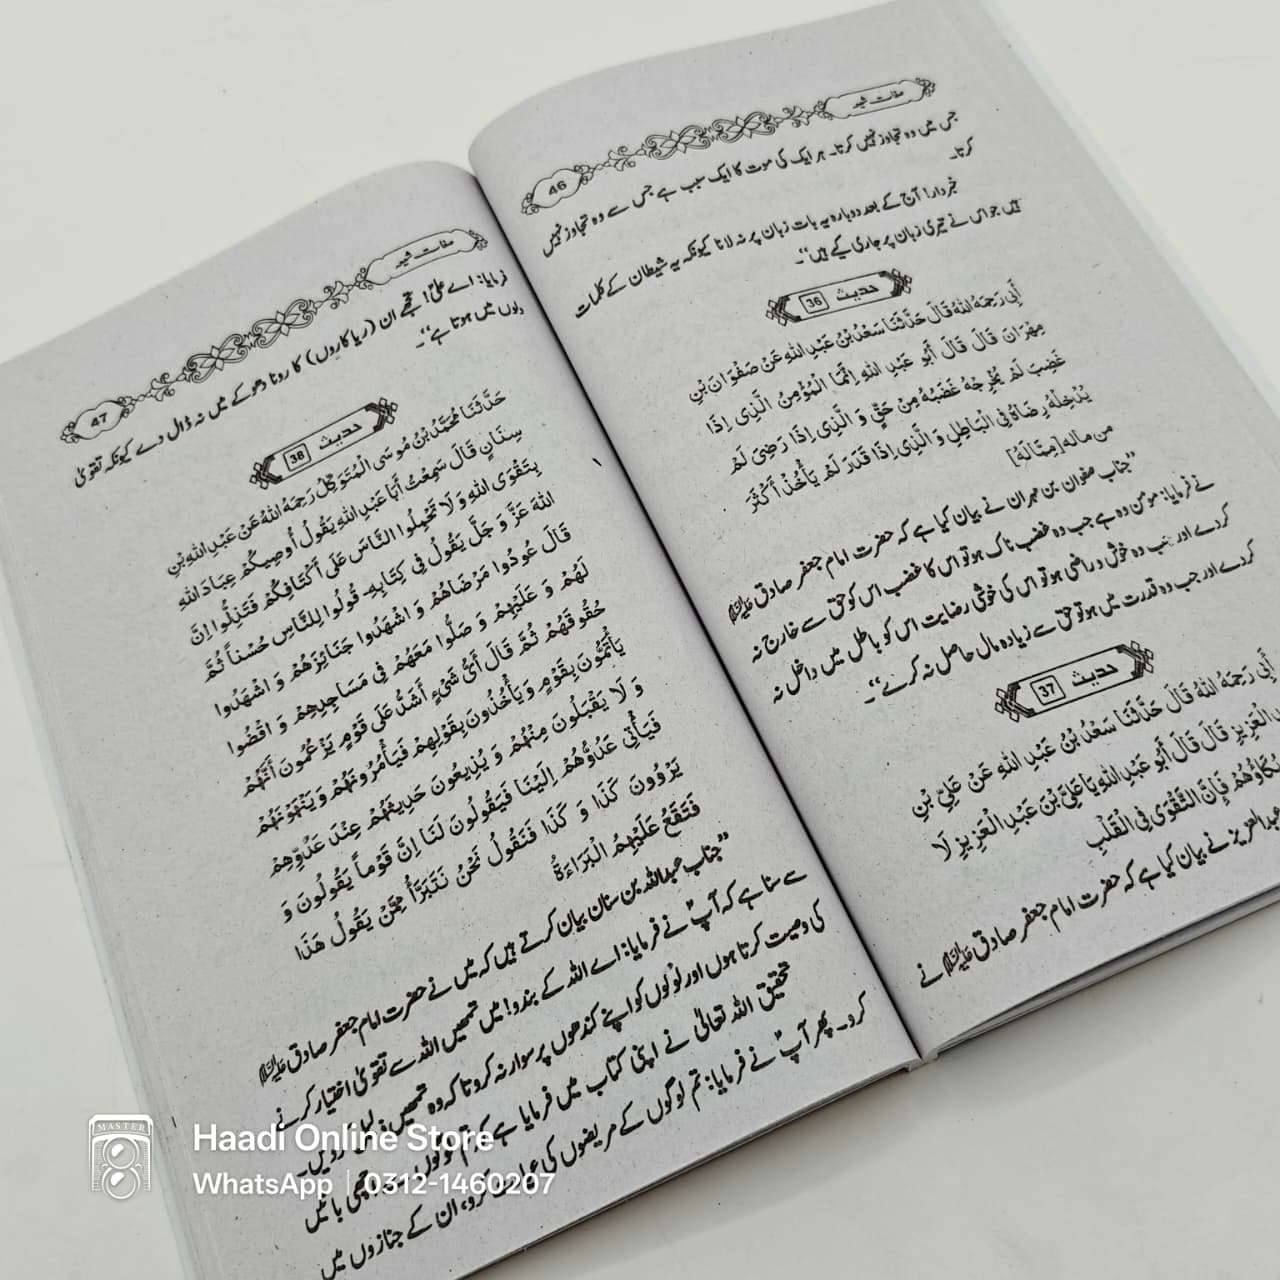 صفات شیعہ
46
جس میں وہ تجاوز نہیں کرتا۔ ہر ایک کی موت کا ایک سبب ہے جس سے وہ تجاوز نہیں
کرتا۔
خبردار! آج کے بعد دوبارہ یہ بات زبان پر نہ لانا کیونکہ یہ شیطان کے کلمات
ہیں جو اس نے تیری زبان پر جاری کیے ہیں‘‘۔
حدیث 36
أَبِي رَحِمَهُ اللهُ قَالَ حَدَّثَنَا سَعْدُ بْنُ عَبْدِ اللهِ عَنْ صَفْوَانَ بْنِ
مِهْرَانَ قَالَ قَالَ أَبُو عَبْدِ اللهِ إِنَّمَا الْمُؤْمِنُ الَّذِي إِذَا
غَضِبَ لَمْ يُخْرِجْهُ غَضَبُهُ مِنْ حَقٍّ وَ الَّذِي إِذَا رَضِيَ لَمْ
يُدْخِلْهُ رِضَاهُ فِي الْبَاطِلِ وَ الَّذِي إِذَا قَدَرَ لَمْ يَأْخُذْ أَكْثَرَ
من ماله [مِمَّا لَهُ]
’’جناب صفوان بن مہران نے بیان کیا ہے کہ حضرت امام جعفر صادق علیہ السلام
نے فرمایا: مومن وہ ہے جب وہ غضب ناک ہو تو اس کا غضب اس کو حق سے خارج نہ
کردے اور جب وہ خوش و راضی ہو تو اس کی خوشی رضایت اس کو باطل میں داخل نہ
کردے اور جب وہ قدرت میں ہو تو حق سے زیادہ مال حاصل نہ کرے‘‘۔
حدیث 37
أَبِي رَحِمَهُ اللهُ قَالَ حَدَّثَنَا سَعْدُ بْنُ عَبْدِ اللهِ عَنْ عَلِيِّ بْنِ
الْعَزِيزِ قَالَ قَالَ أَبُو عَبْدِ اللهِ يَا عَلِيَّ بْنَ عَبْدِ الْعَزِيزِ لَا
بُكَاؤُهُمْ فَإِنَّ التَّقْوَى فِي الْقَلْبِ
عبدالعزیز نے بیان کیا ہے کہ حضرت امام جعفر صادق علیہ السلام نے
صفات شیعہ
47
فرمایا: اے علی! تجھے ان (ریا کاروں) کا رونا دھوکے میں نہ ڈال دے کیونکہ تقویٰ
دلوں میں ہوتا ہے‘‘۔
حدیث 38
حَدَّثَنَا مُحَمَّدُ بْنُ مُوسَى الْمُتَوَكِّلُ رَحِمَهُ اللهُ عَنْ عَبْدِ اللهِ بْنِ
سِنَانٍ قَالَ سَمِعْتُ أَبَا عَبْدِ اللهِ يَقُولُ أُوصِيكُمْ عِبَادَ اللهِ
بِتَقْوَى اللهِ وَ لَا تَحْمِلُوا النَّاسَ عَلَى أَكْتَافِكُمْ فَتَذِلُّوا إِنَّ
اللهَ عَزَّ وَ جَلَّ يَقُولُ فِي كِتَابِهِ۔ قُولُوا لِلنَّاسِ حُسْناً ثُمَّ
قَالَ عُودُوا مَرْضَاهُمْ وَ اشْهَدُوا جَنَائِزَهُمْ وَ اشْهَدُوا
لَهُمْ وَ عَلَيْهِمْ وَ صَلُّوا مَعَهُمْ فِي مَسَاجِدِهِمْ وَ اقْضُوا
حُقُوقَهُمْ ثُمَّ قَالَ أَيُّ شَيْءٍ أَشَدُّ عَلَى قَوْمٍ يَزْعُمُونَ أَنَّهُمْ
يَأْتَمُّونَ بِقَوْمٍ وَ يَأْخُذُونَ بِقَوْلِهِمْ فَيَأْمُرُونَهُمْ وَ يَنْهَوْنَهُمْ
وَ لَا يَقْبَلُونَ مِنْهُمْ وَ يُذِيعُونَ حَدِيثَهُمْ عِنْدَ عَدُوِّهِمْ
فَيَأْتِي عَدُوُّهُمْ إِلَيْنَا فَيَقُولُونَ لَنَا إِنَّ قَوْماً يَقُولُونَ وَ
يَرْوُونَ كَذَا وَ كَذَا فَنَقُولُ نَحْنُ نَتَبَرَّأُ مِمَّنْ يَقُولُ هَذَا
فَتَقَعُ عَلَيْهِمُ الْبَرَاءَةُ
’’جناب عبداللہ بن سنان بیان کرتے ہیں کہ میں نے حضرت امام جعفر صادق علیہ السلام
سے سنا ہے کہ آپؑ نے فرمایا: اے اللہ کے بندو! میں تمھیں اللہ سے تقویٰ اختیار کرنے
کی وصیت کرتا ہوں اور لوگوں کو اپنے کندھوں پر سوار نہ کرو تاکہ وہ تمھیں
تحقیق اللہ تعالیٰ نے اپنی کتاب میں فرمایا ہے کہ تم لوگوں باتیں
کرو۔ پھر آپؑ نے فرمایا: تم لوگوں کے مریضوں کی ان کے جنازوں میں
MASTER
Haadi Online Store
WhatsApp | 0312-1460207